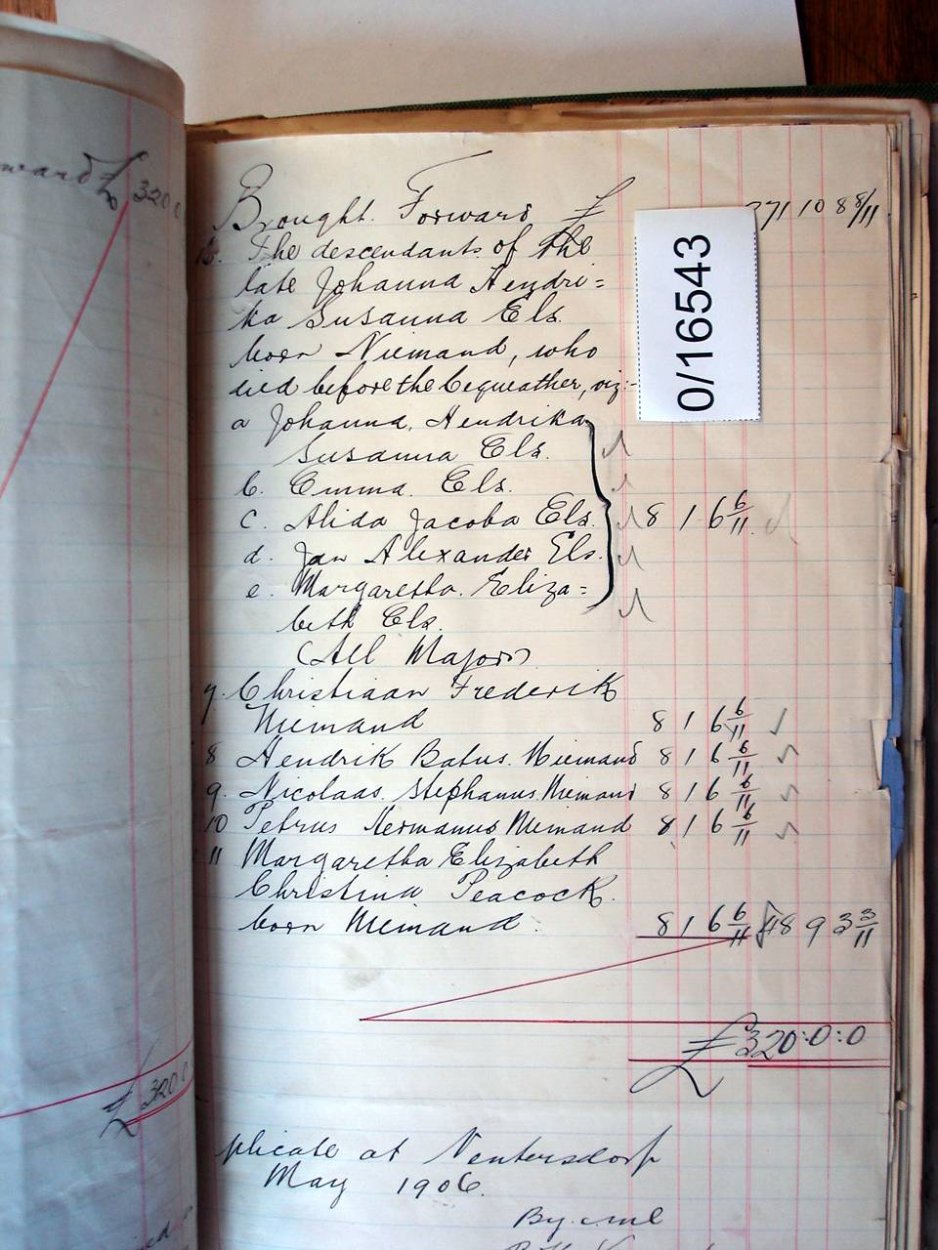 ward £ 320
Brought Forward £ 271 10 8 8/11
0/16543
The descendants of the
late Johanna Hendri=
ka Susanna Els
born Niemand, who
died before the bequeather, viz:-
a Johanna Hendrika
Susanna Els.
b. Emma Els.
c. Alida Jacoba Els. 8 1 6 6/11
d. Jan Alexander Els.
e. Margaretha Eliza=
beth Els.
(All Majors)
7. Christiaan Frederik
Niemand 8 1 6 6/11
8 Hendrik Batus Niemand 8 1 6 6/11
9. Nicolaas Stephanus Niemand 8 1 6 6/11
10 Petrus Hermanus Niemand 8 1 6 6/11
11 Margaretha Elizabeth
Christina Peacock
born Niemand. 8 1 6 6/11 48 9 3 3/11
£320:0:0
£ 320
plicate at Ventersdorp
May 1906.
By me